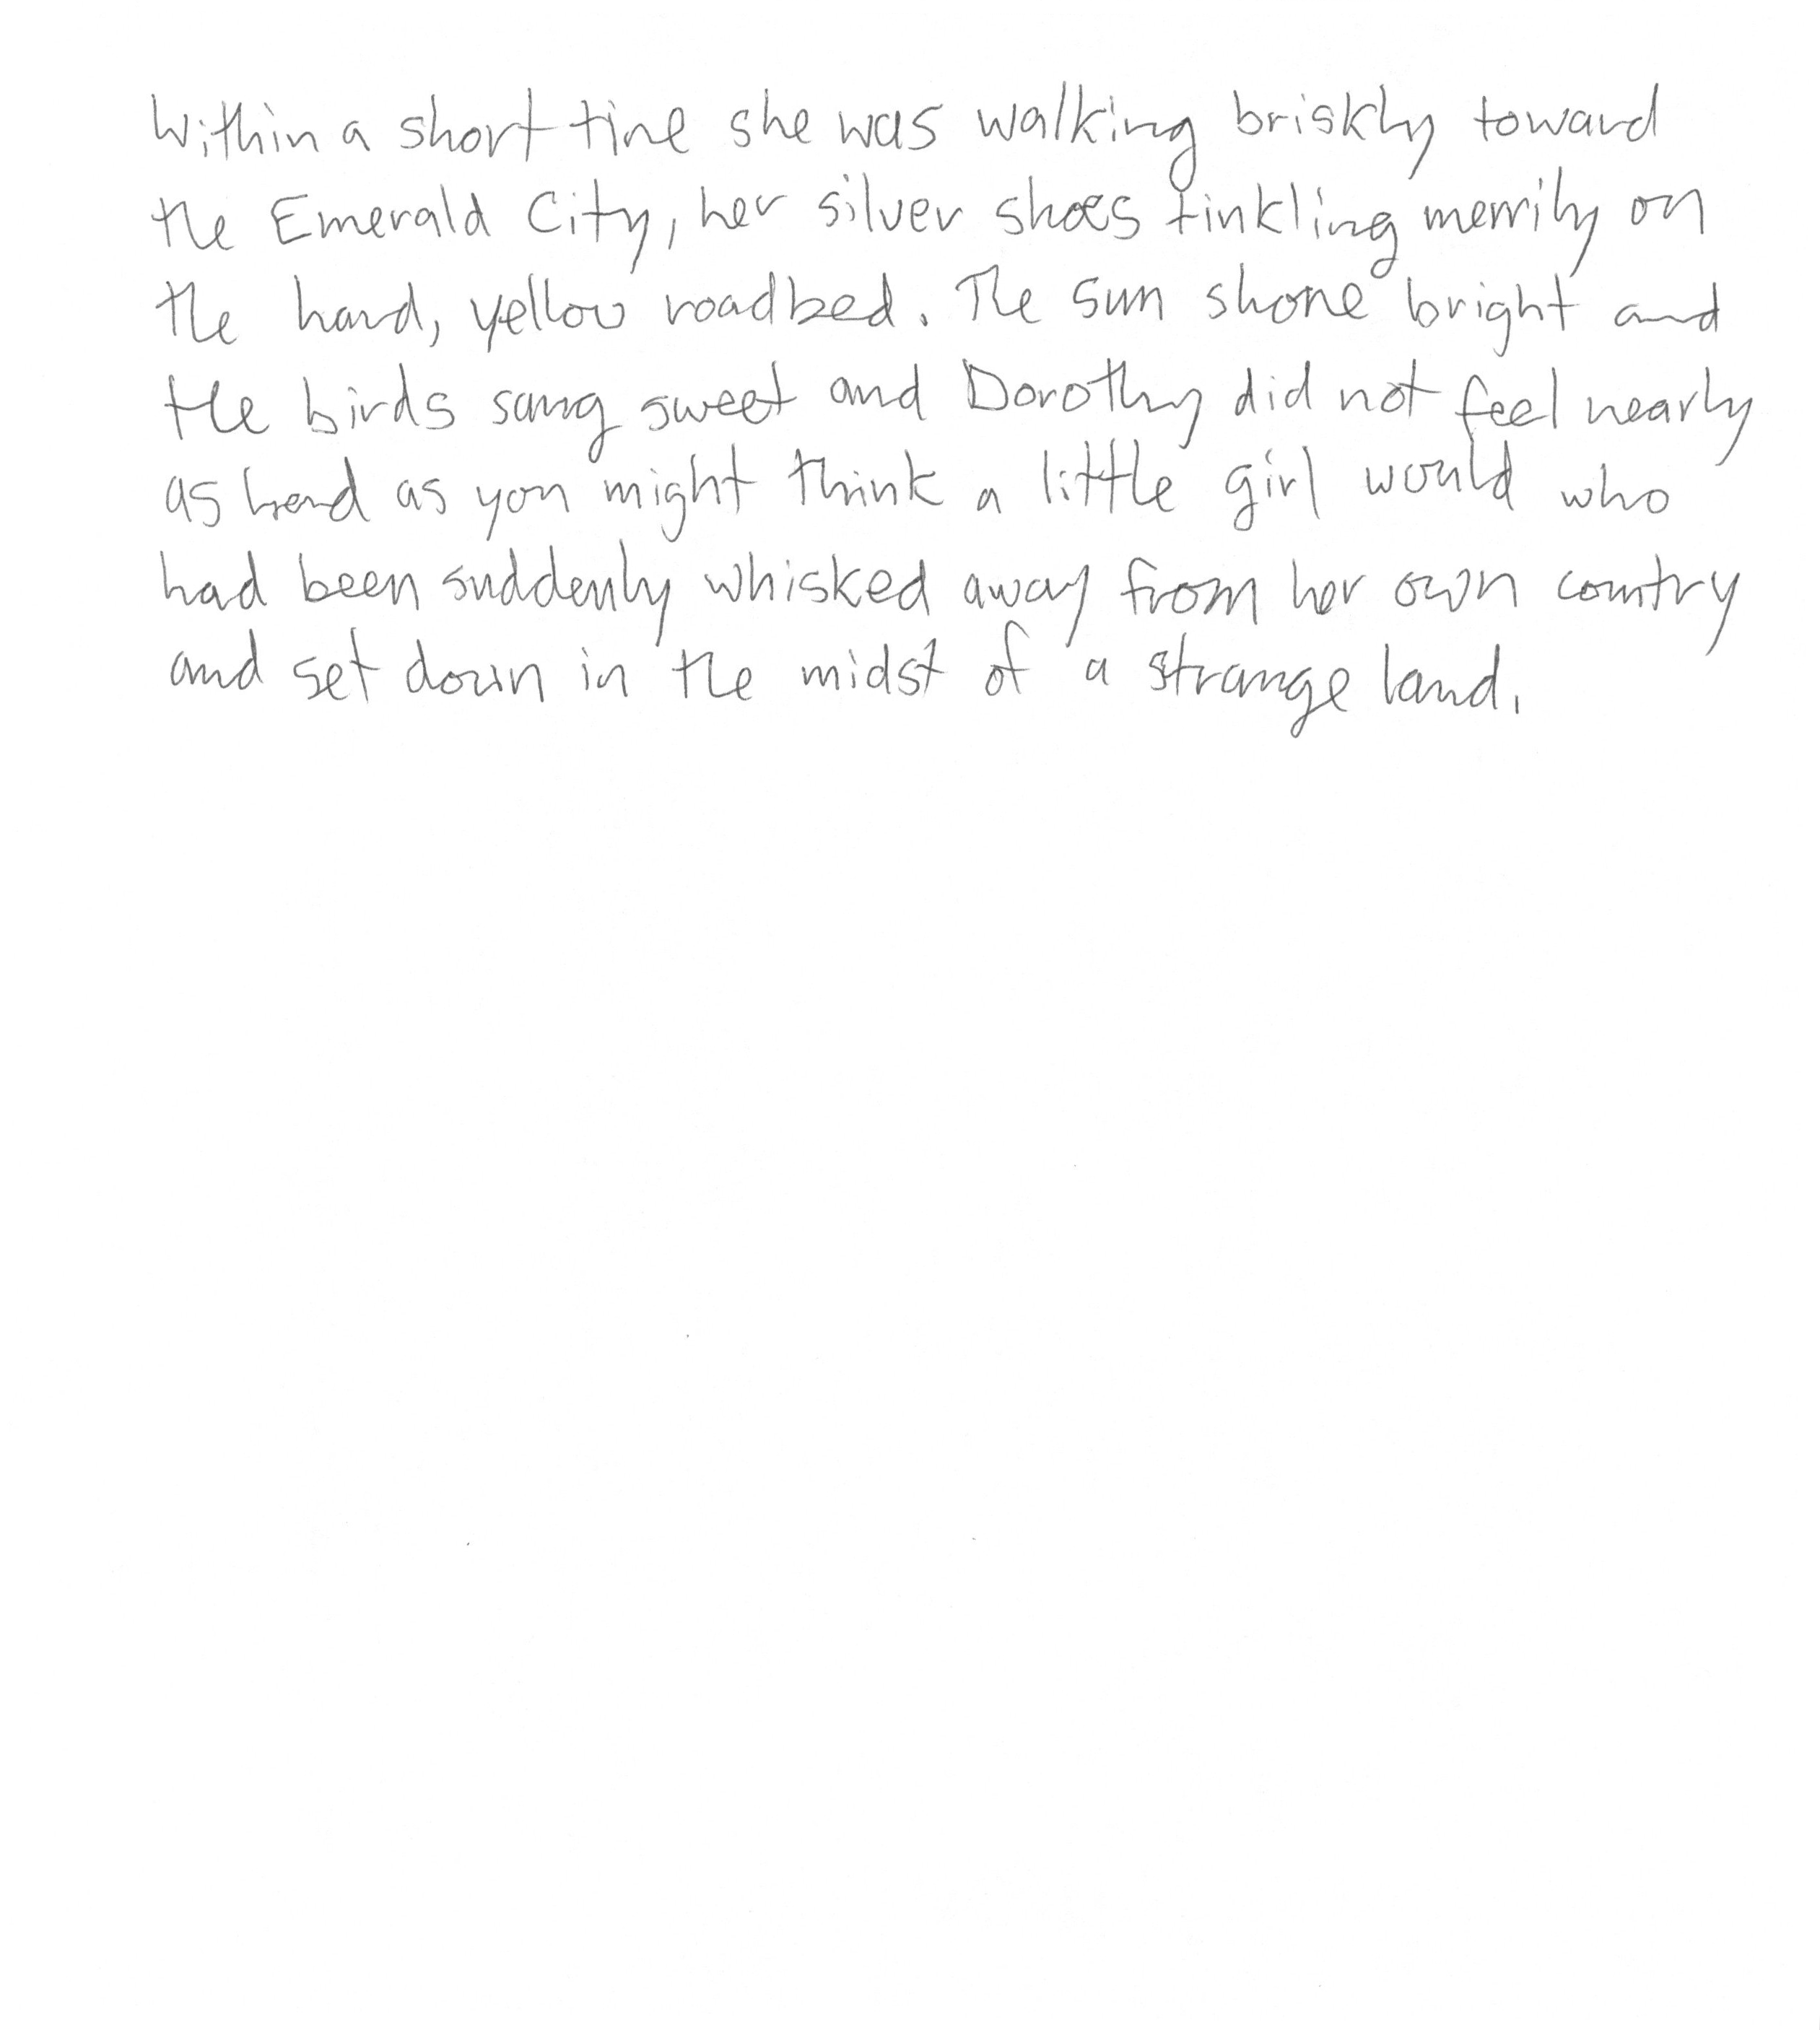 Within a short time she was walking briskly toward
the Emerald City, her silver shoes tinkling merrily on
the hard, yellow roadbed. The sun shone bright and
the birds sang sweet and Dorothy did not feel nearly
as hard as you might think a little girl would who
had been suddenly whisked away from her own country
and set down in the midst of a strange land.